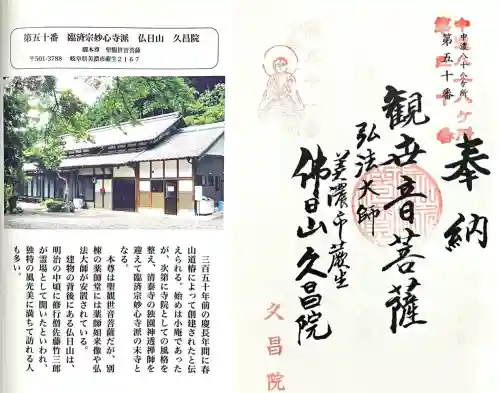 第五十番 臨済宗妙心寺派 仏日山 久昌院
御本尊 聖観世音菩薩
〒501-3788 岐阜県美濃市蕨生2167
三百五十年前の慶長年間に春
山道椿によって創建されたと伝
えられる。始めは小庵であった
が、次第に寺院としての風格を
整え、清泰寺の独園神透禅師を
迎えて臨済宗妙心寺派の末寺と
なる。
本尊は聖観世音菩薩だが、別
棟の薬師堂には薬師如来像や弘
法大師が安置されている。
建物の背後にある仏日山は、
明治の中頃に修行僧佐藤竹三郎
が霊場として開いたといわれ、
独特の風光美に満ちて訪れる人
も多い。
中濃八十八ケ所
第五十番
奉納
觀世音菩薩
弘法大師
美濃市蕨生
佛日山久昌院
久昌院